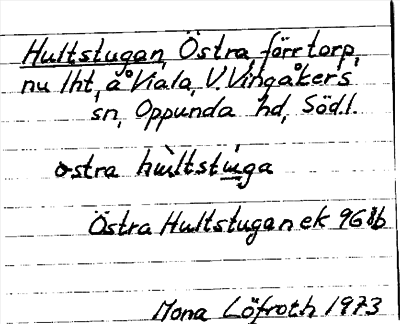 Hultstugan, Östra, förr torp,
nu lht, å Viala, V. Vingåkers
sn, Oppunda hd, Södl.
ostra hultstuga
Östra Hultstugan ek 96 8b
Mona Löfroth 1973